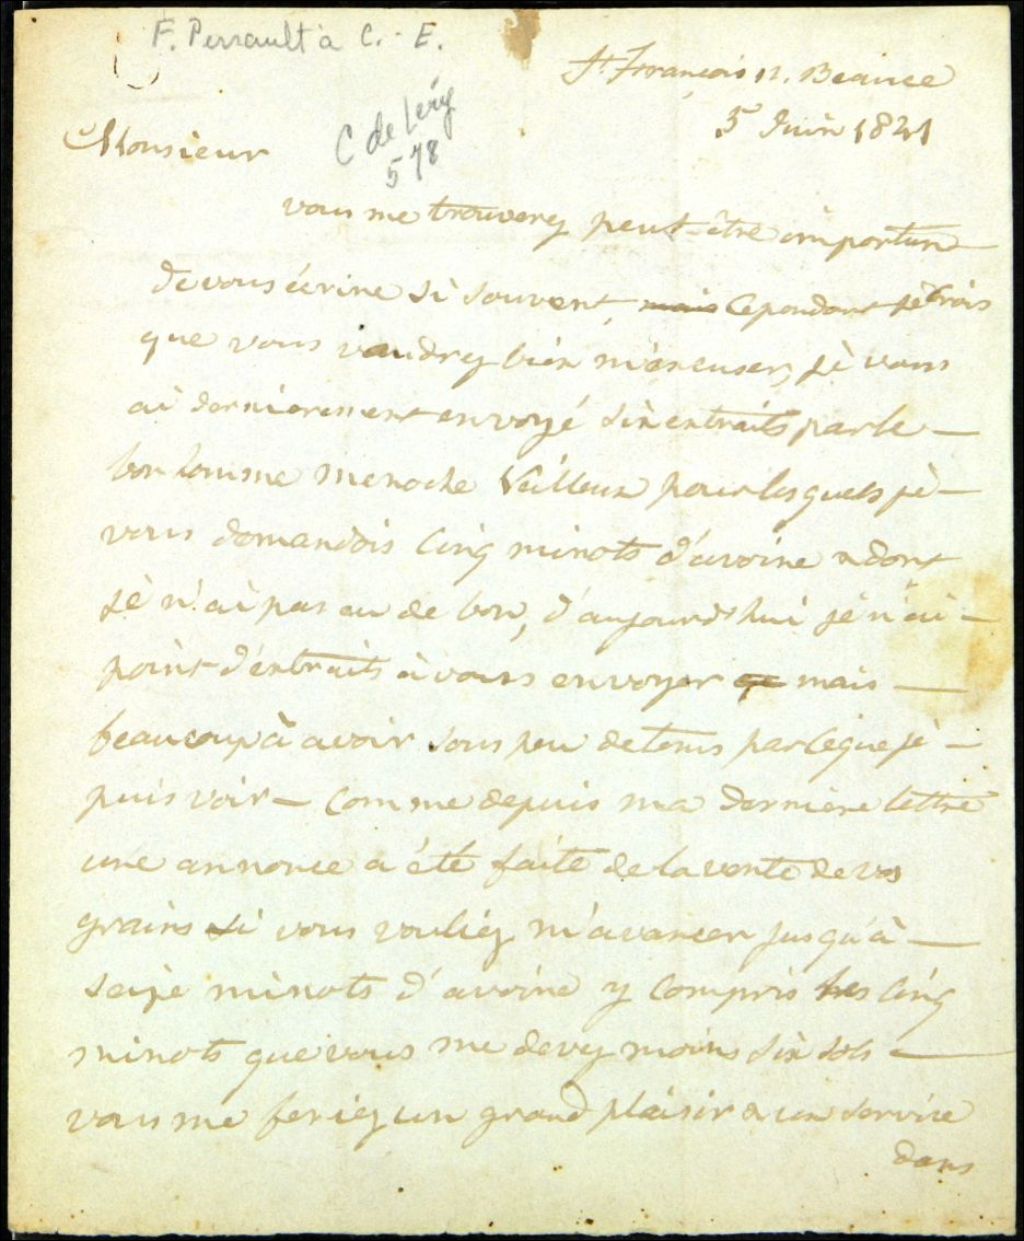 F. Perrault à C.- E.
C de Lery
578
St François N. Beauce
5 Juin 1841
Monsieur
vous me trouverez peut-être importun
de vous écrire si souvent, mais Cependant jè crois
que vous voudrez bien m'excuser, jè vous
ai dernierement envoyé six extraits par le
bon homme menoche Veilleux pour lesquels jè
vous demandois Cinq minots d'avoine & dont
jè n'ai pas eu de bon, d'aujourd'hui jè n'ai
point d'extraits à vous envoyer mais
beaucoup à avoir sous peu de tems parceque jè
puis voir - Comme depuis ma dernière lettre
une annonce a été faite de la vente de vos
grains si vous vouliez m'avancer jusqu'à
seize minots d'avoine y compris les Cinq
minots que vous me devez moins six sols
vous me feriez un grand plaisir & un service
dans